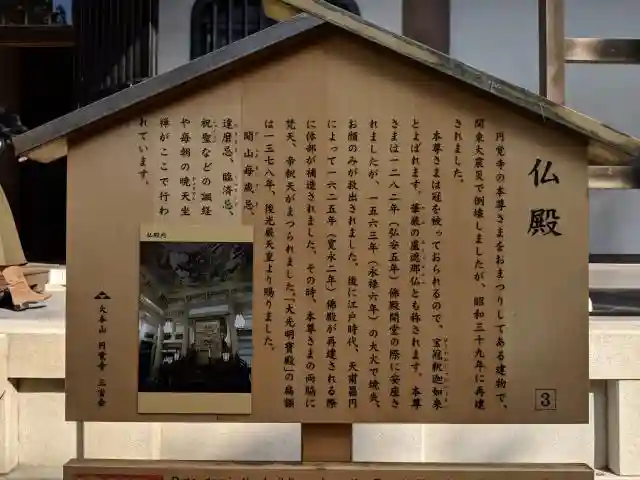 仏殿
円覚寺の本尊さまをおまつりしてある建物で、
関東大震災で倒壊しましたが、昭和三十九年に再建
されました。
本尊さまは冠を被っておられるので、宝冠釈迦如来
とよばれます。華厳の盧遮那仏とも称されます。本尊
さまは一二八二年（弘安五年）佛殿開堂の際に安座さ
れましたが、一五六三年（永禄六年）の大火で焼失、
お顔のみが救出されました。後に江戸時代、天甫昌円
によって一六二五年（寛永二年）佛殿が再建される際
に体部が補造されました。その時、本尊さまの両脇に
梵天、帝釈天がまつられました。「大光明寶殿」の扁額
は一三七八年、後光厳天皇より賜りました。
開山毎歳忌、
達磨忌、臨済忌、
祝聖などの諷経
や毎朝の暁天坐
禅がここで行わ
れています。
仏殿内
大本山 円覚寺 三宝会
3